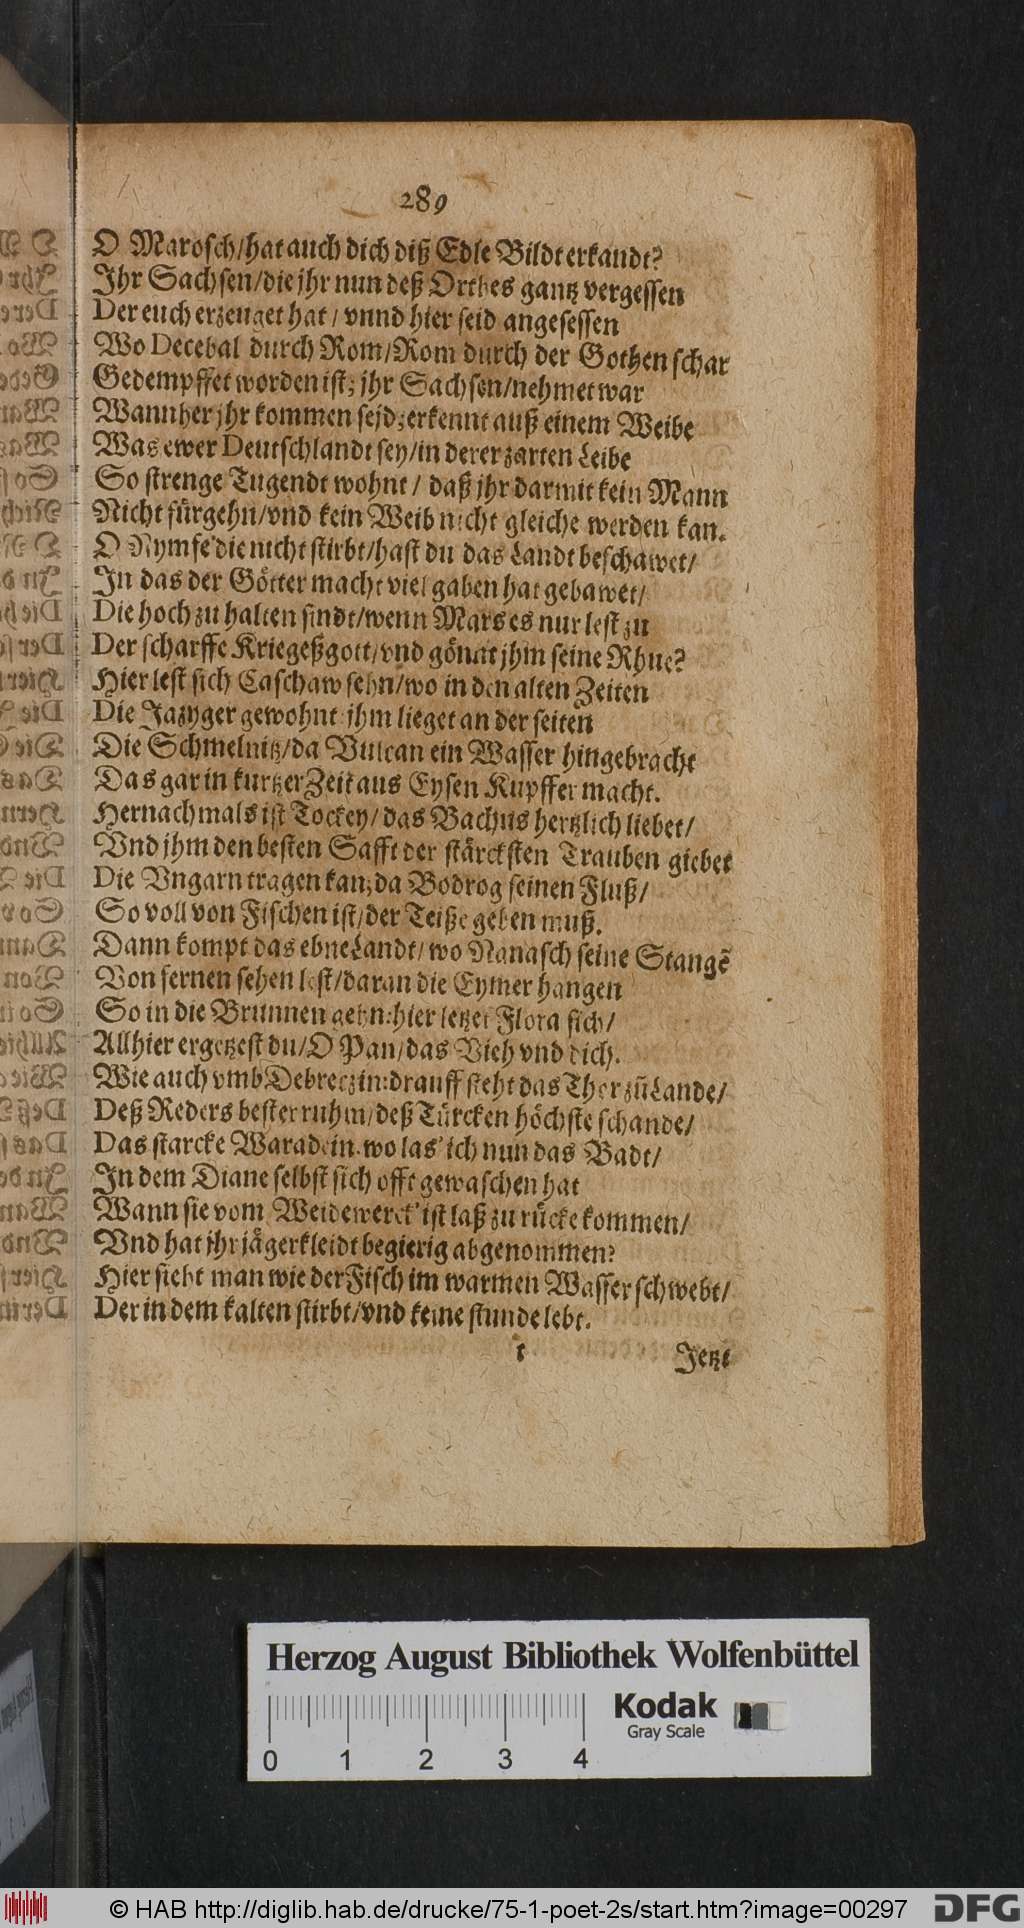 289
O Marosch/hat auch dich diß Edle Bildt erkandt?
Ihr Sachsen/die jhr nun deß Orthes gantz vergessen
Der euch erzeuget hat / vnnd hier seid angesessen
Wo Decebal durch Rom/Rom durch der Gothen schar
Gedempffet worden ist; jhr Sachsen/nehmet war
Wannher jhr kommen sejd; erkennt auß einem Weibe
Was ewer Deutschlandt sey/in derer zarten Leibe
So strenge Tugendt wohnt / daß jhr darmit kein Mann
Nicht fürgehn/vnd kein Weib nicht gleiche werden kan.
O Nymfe die nicht stirbt/hast du das Landt beschawet/
In das der Götter macht viel gaben hat gebawet/
Die hoch zu halten sindt/wenn Mars es nur lest zu
Der scharffe Kriegeßgott/vnd gönnt jhm seine Rhue?
Hier lest sich Caschaw sehn/wo in den alten Zeiten
Die Jazyger gewohnt: jhm lieget an der seiten
Die Schmelnitz/da Vulcan ein Wasser hingebracht
Das gar in kurtzer Zeit aus Eysen Kupffer macht.
Hernachmals ist Tockey/das Bachus hertzlich liebet/
Vnd jhm den besten Safft der stärcksten Trauben giebet
Die Vngarn tragen kan; da Bodrog seinen Fluß/
So voll von Fischen ist/der Teiße geben muß.
Dann kompt das ebne Landt/wo Nanasch seine Stangē
Von fernen sehen lest/daran die Eymer hangen
So in die Brunnen gehn: hier letzet Flora sich/
Allhier ergetzest du/O Pan/das Vieh vnd dich.
Wie auch vmb Debreczin: drauff steht das Thor zū Lande/
Deß Reders bester ruhm/deß Türcken höchste schande/
Das starcke Waradein. wo las' ich nun das Badt/
In dem Diane selbst sich offt gewaschen hat
Wann sie vom Weidewerck' ist laß zu rücke kommen/
Vnd hat jhr jägerkleidt begierig abgenommen?
Hier sieht man wie der Fisch im warmen Wasser schwebt/
Der in dem kalten stirbt/vnd keine stunde lebt.
t Jetzt
Herzog August Bibliothek Wolfenbüttel
Kodak
Gray Scale
0 1 2 3 4
© HAB http://diglib.hab.de/drucke/75-1-poet-2s/start.htm?image=00297
DFG